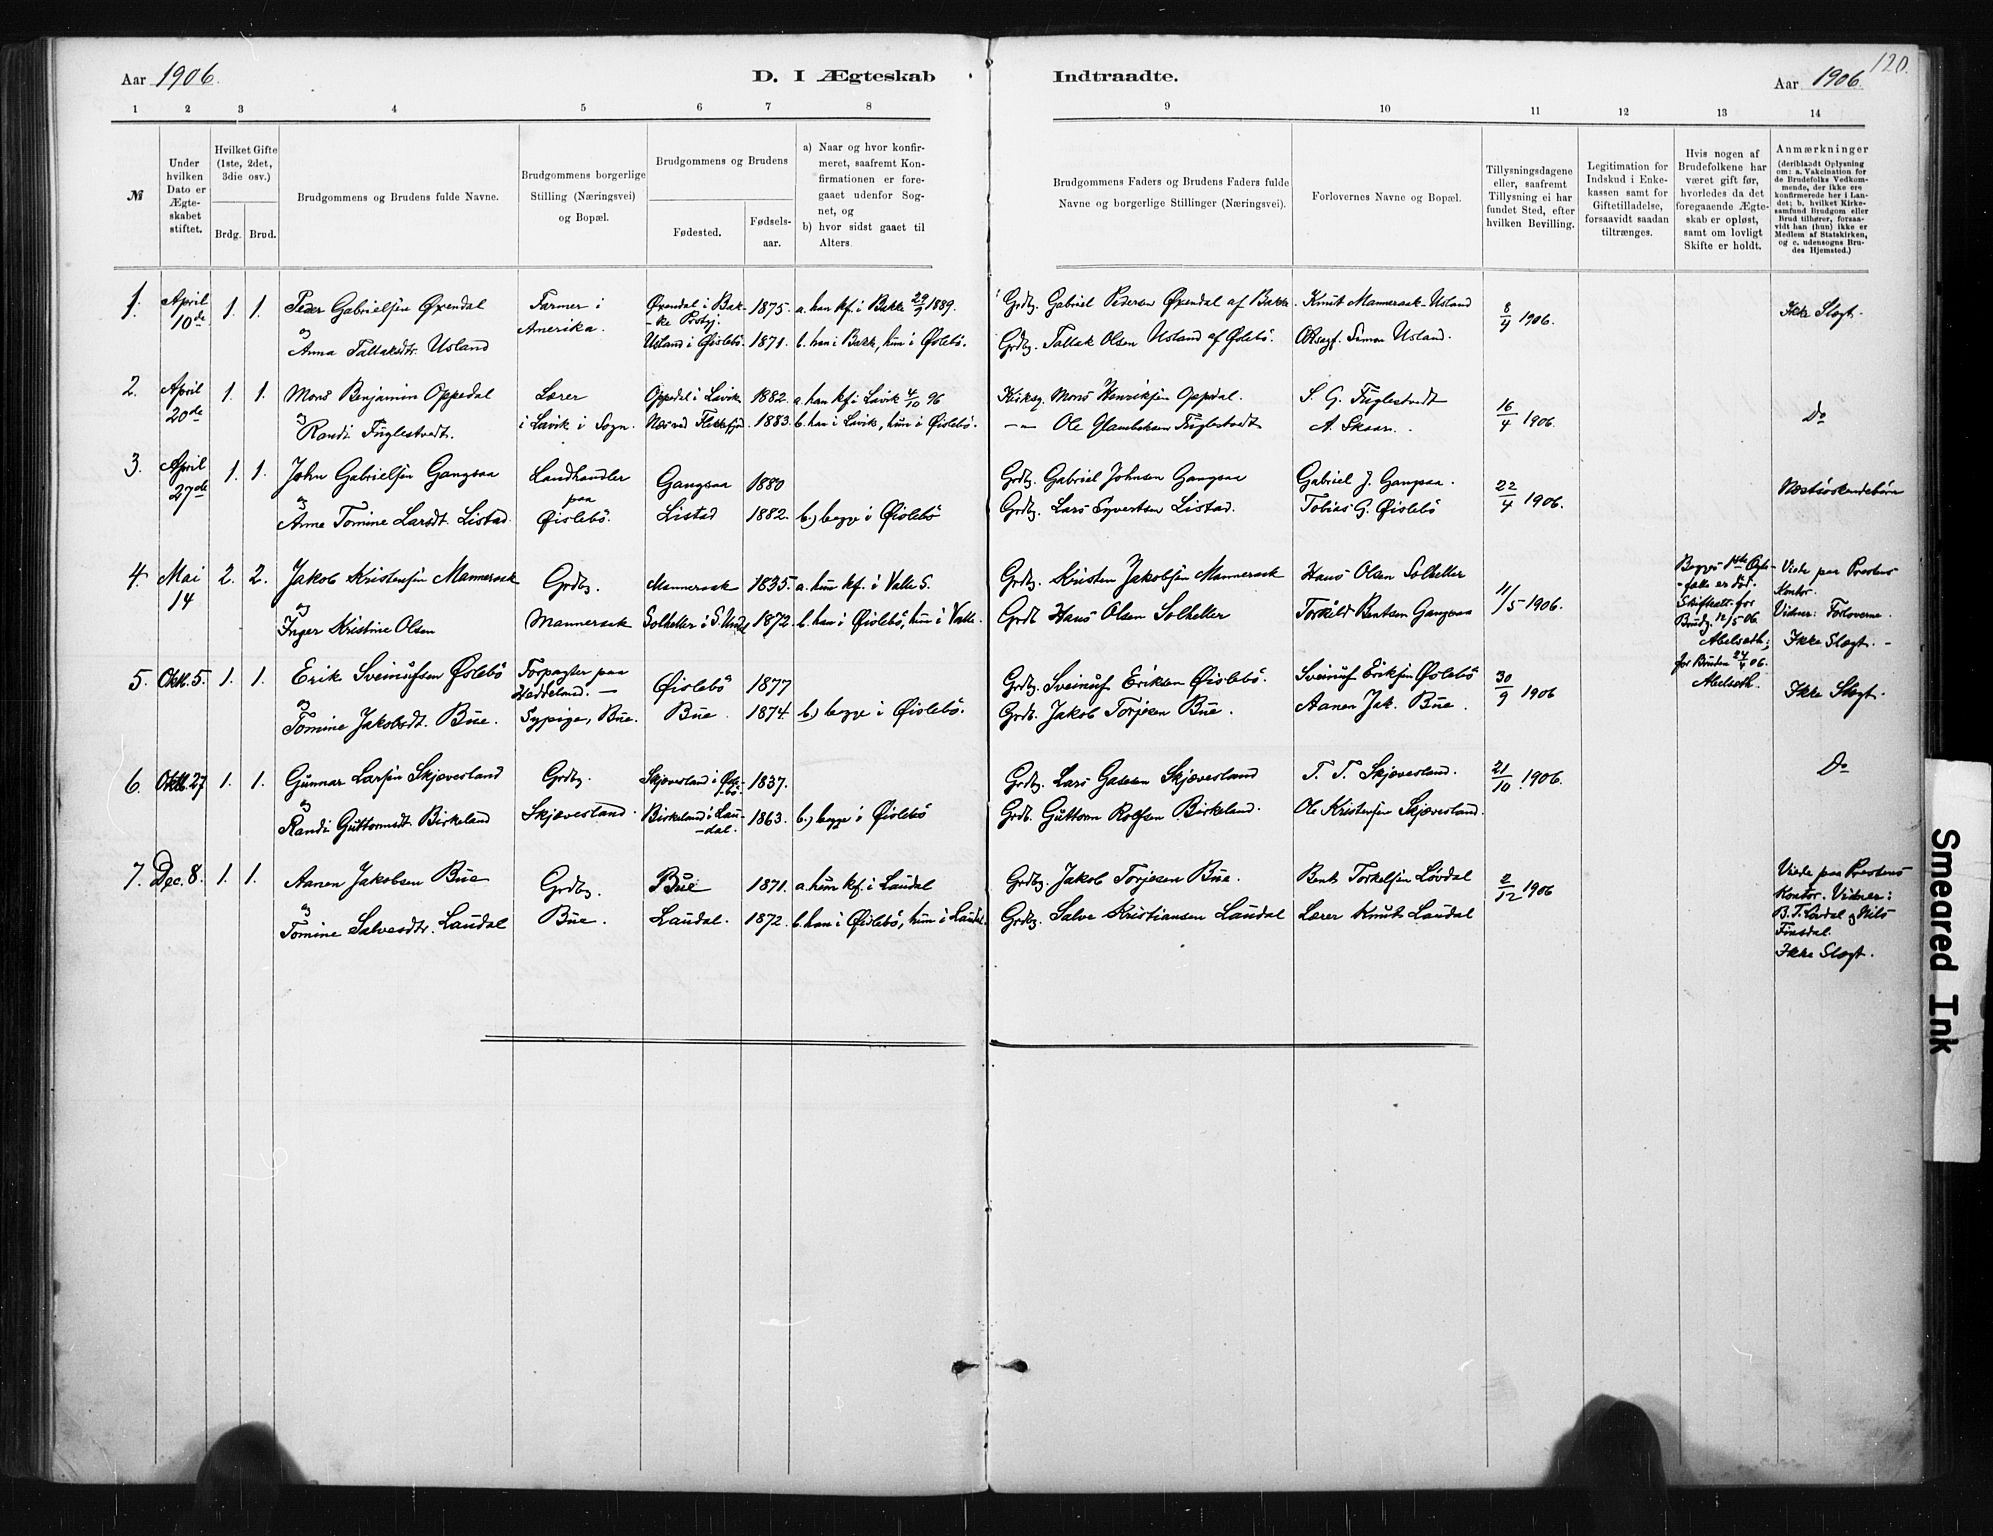 120.
Aar 1906. D. I Ægteskab Indtraadte. Aar 1906
1 2 3 4 5 6 7 8 9 10 11 12 13 14
№
Under hvilken Dato er Ægteskabet stiftet.
Hvilket Gifte (1ste, 2det, 3die osv.)
Brdg. Brud.
Brudgommens og Brudens fulde Navne.
Brudgommens borgerlige Stilling (Næringsvei) og Bopæl.
Brudgommens og Brudens
Fødested. Fødselsaar.
a) Naar og hvor konfirmeret, saafremt Konfirmationen er foregaaet udenfor Sognet, og
b) hvor sidst gaaet til Alters.
Brudgommens Faders og Brudens Faders fulde Navne og borgerlige Stillinger (Næringsvei).
Forlovernes Navne og Bopæl.
Tillysningsdagene eller, saafremt Tillysning ei har fundet Sted, efter hvilken Bevilling.
Legitimation for Indskud i Enkekassen samt for Giftetilladelse, forsaavidt saadan tiltrænges.
Hvis nogen af Brudefolkene har været gift før, hvorledes da det foregaaende Ægteskab er opløst, samt om lovligt Skifte er holdt.
Anmærkninger
(deriblandt Oplysning om: a. Vakcination for de Brudefolks Vedkommende, der ikke ere konfirmerede her i Landet; b. hvilket Kirkesamfund Brudgom eller Brud tilhører, forsaavidt han (hun) ikke er Medlem af Statskirken, og c. udensogns Brudes Hjemsted.)
1. April 10de 1. 1. Peder Gabrielsen Øxendal Farmer i Amerika. Øxendal i Bakke Prstgj. 1875. a. han kf. i Bakke 29/9 1889. Grdbg. Gabriel Pedersen Øxendal af Bakke. Knut Mannersak-Usland 8/4 1906. Ikke Slegt.
og Anna Tallaksdtr. Usland Usland i Øislebö. 1871. b. han i Bakk, hun i Øslebö. Grdbg. Tallak Olsen Usland af Øslebö. Simon Usland.
2. April 20de 1. 1. Mons Benjamin Oppedal Lærer Oppedal i Lavik 1882. a. han kf. i Lavik 4/10 96 Kirkesg. Mons Henriksen Oppedal. S. G. Fuglestvedt 16/4 1906. Do
og Randi Fuglestvedt. i Lavik i Sogn. Næs ved Flekkefjord. 1883. b. han i Lavik, hun i Øislebö. -"- Ole Fuglestvedt A. Skaar.
3. April 27de 1. 1. John Gabrielsen Gangsaa Landhandler Gangsaa 1880 Grdbg. Gabriel Johnsen Gangsaa Gabriel J. Gangsaa. 22/4 1906. Næstsøskendebörn
og Anne Tomine Larsdt. Listad. paa Øislebö. Listad 1882. b.) begge i Øislebö Grdbg. Lars Syvertsen Listad. Tobias G. Øislebö
4. Mai 14 2. 2. Jakob Kristensen Mannersak Grdbg. Mannersak 1835. a. hun kf. i Valle S. Grdbg. Kristen Jakobsen Mannersak Hans Olsen Solheller 11/5 1906. Begges 1ste Ægtefælle er död. Skifteatt. for Brudg. 12/5 06. Abelseth; for Bruden 24/4 06. Abelseth. Viede paa Prestens Kontor. Vidner: Forloverne. Ikke Slegt. -
og Inger Kristine Olsen Mannersak Solheller i S. Undal 1872. b. han i Øislebö, hun i Valle. Grdb Hans Olsen Solheller Torkild Bentsen Gangsaa
5. Oktb. 5. 1. 1. Erik Sveinulfsen Øslebö Forpagter paa Heddeland. - Øislebö 1877 Grdbg. Sveinulf Eriksen Øislebö. Sveinulf Eriksen Øslebö 30/9 1906 Ikke Slegt.
og Tomine Jakobsdt. Bue. Sypige, Bue. Bue. 1874. b) begge i Øislebö. Grdb. Jakob Torjesen Bue. Aanen Jak. Bue.
6. Oktb. 27 1. 1. Gunnar Larsen Skjævesland Grdbg. Skjævesland i Øislebö. 1837. Grdbg. Lars Skjævesland T. T. Skjævesland. 21/10 1906. Do
og Randi Guttormsdt. Birkeland Skjævesland. Birkeland i Laudal. 1863. b.) begge i Øislebö Grdb. Guttorm Rolfsen Birkeland. Ole Kristensen Skjævesland.
7. Dec. 8. 1. 1. Aanen Jakobsen Bue Grdbg. Bue 1871. a. hun kf. i Laudal Grdbg. Jakob Torjesen Bue. Bent Torkelsen Løvdal 2/12 1906 Viede paa Prestens Kontor. Vidner: B. T. Lövdal og Nils Finsdal. Ikke Slegt.
og Tomine Salvesdtr. Laudal Bue. Laudal. 1872. b. han i Øislebö, hun i Laudal. Grdbg. Salve Kristiansen Laudal Lærer Knut Laudal
Smeared Ink